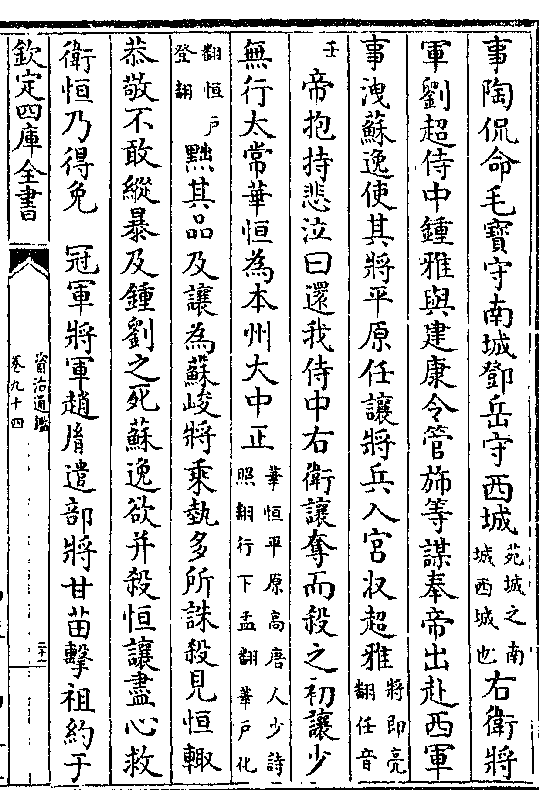 事陶侃命毛寶守南城鄧岳守西城苑城之南城西城也右衛將
軍劉超侍中鍾雅與建康令管斾等謀奉帝出赴西軍
事洩蘇逸使其將平原任讓將兵入宮收超雅將即亮翻任音
壬帝抱持悲泣曰還我侍中右衛讓奪而殺之初讓少
無行太常華恒為本州大中正華恒平原高唐人少詩照翻行下孟翻華戶化
翻恒戶登翻黜其品及讓為蘇峻將乘埶多所誅殺見恒輙
恭敬不敢縱暴及鍾劉之死蘇逸欲并殺恒讓盡心救
衛恒乃得免　冠軍將軍趙𦙍遣部將甘苗擊祖約于
欽定四庫全書
資治通鑑
卷九十四
二十一